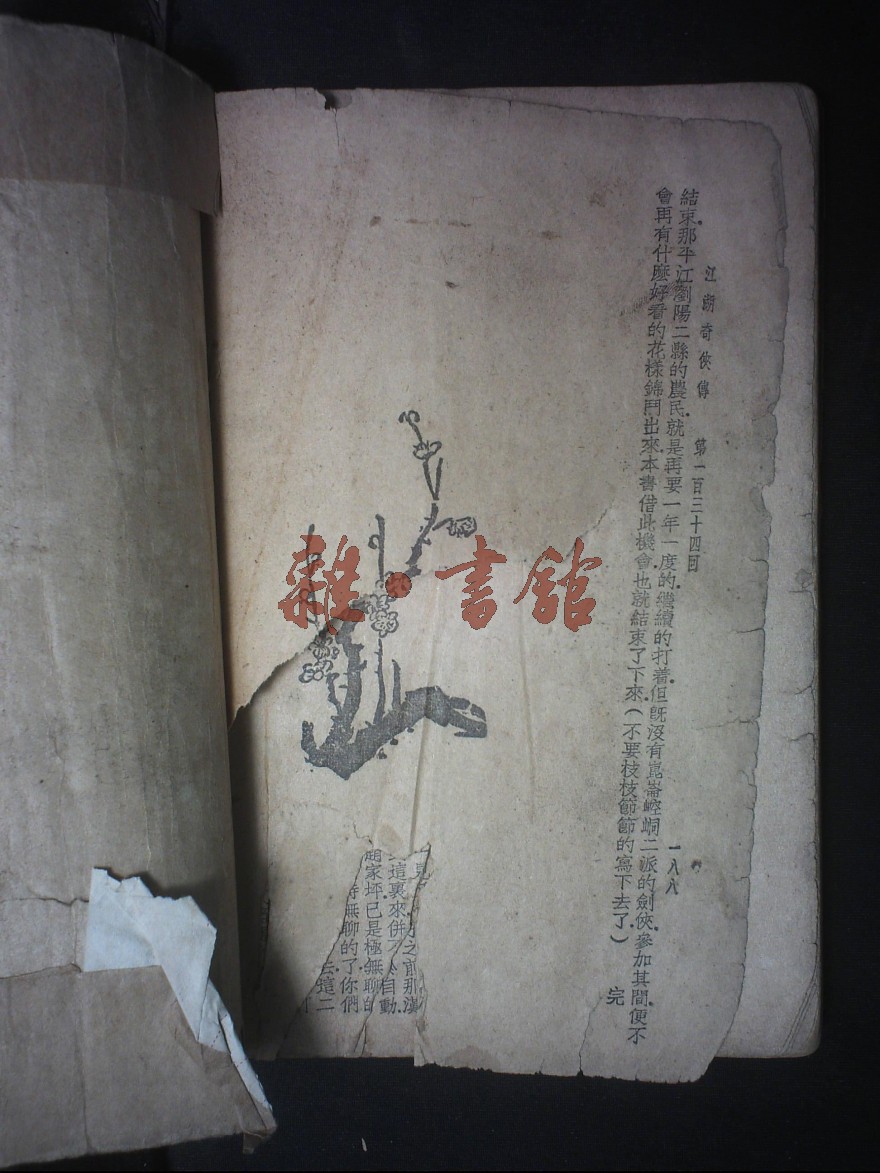 江湖奇俠傳 第一百三十四回 一八八
結束.那平江瀏陽二縣的農民.就是再要一年一度的.繼續的打着.但既沒有崑崙崆峒二派的劍俠.參加其間.便不
會再有什麽好看的花樣錦鬥出來.本書借此機會.也就結束了下來.(不要枝枝節節的寫下去了) 完
雜·書館
之前那
這裏來併
自動
家坪.已是極無聊
無聊的了.你們
去.這二